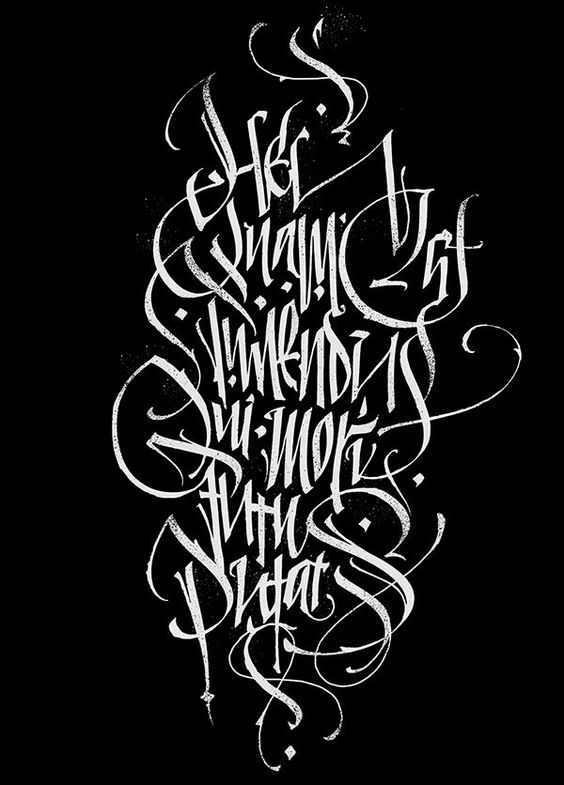 Heu
Quam Est
timendus
Qui mori
tutus
Putat